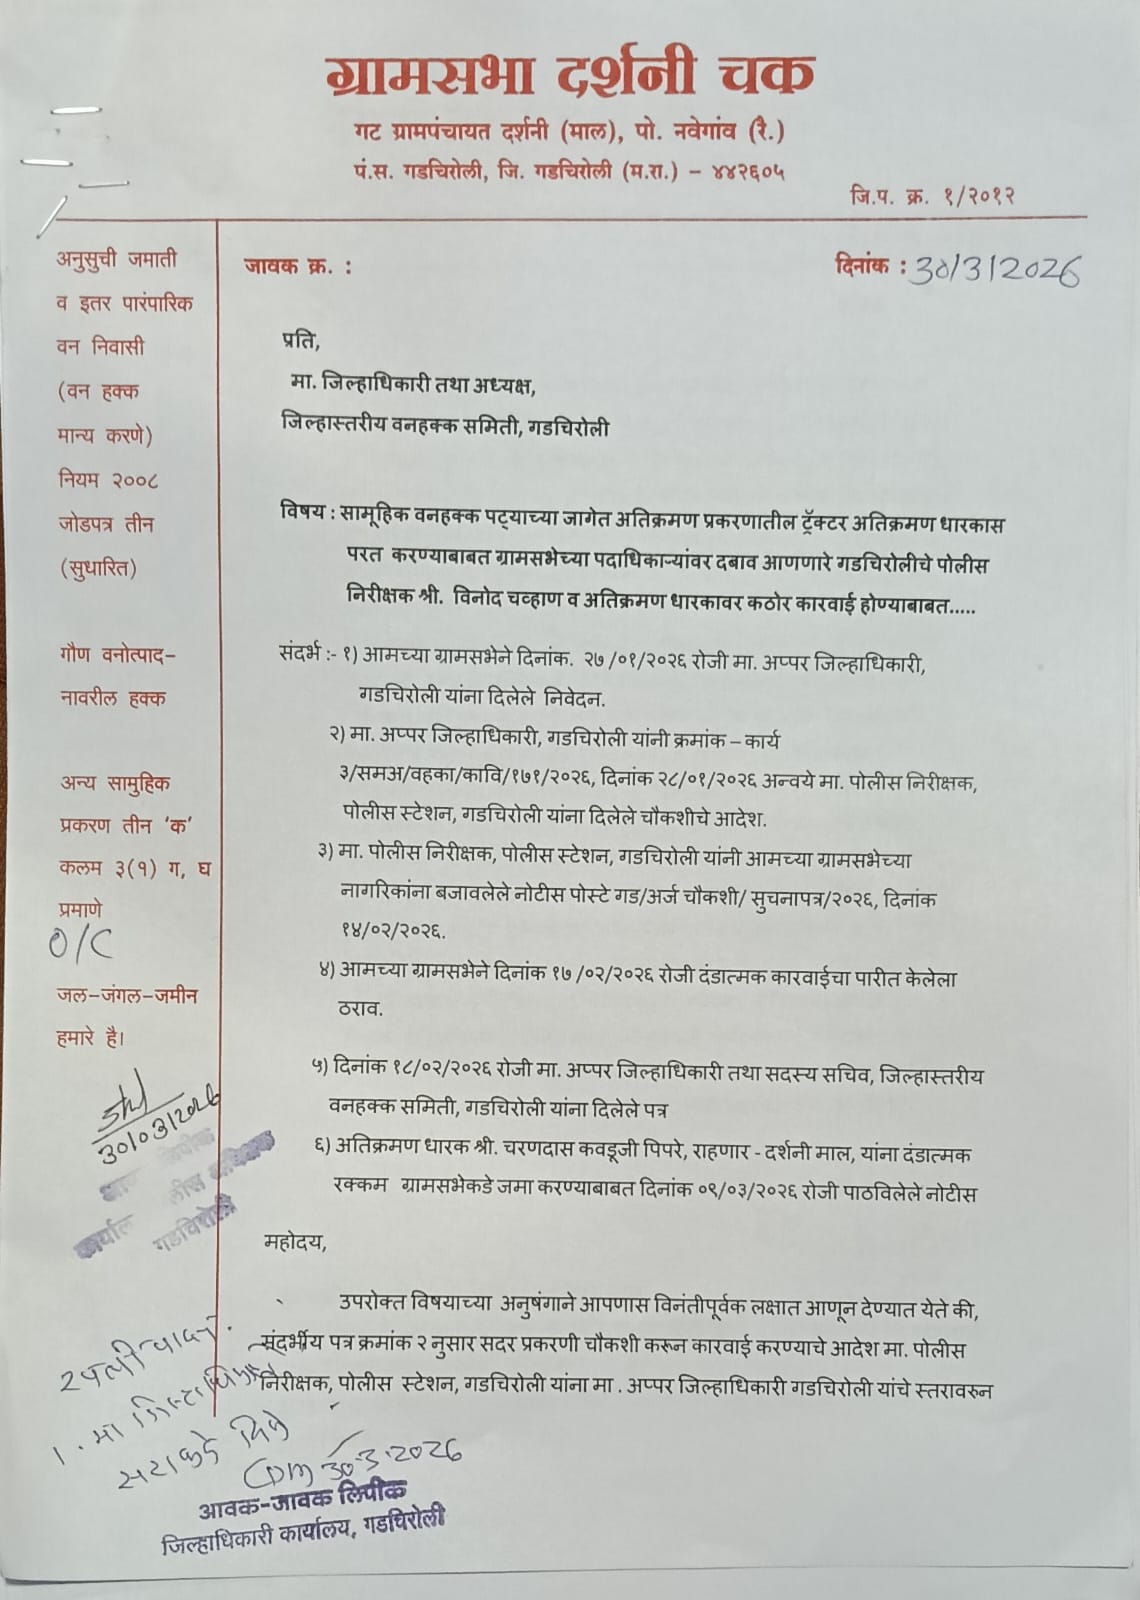 ग्रामसभा दर्शनी चक
गट ग्रामपंचायत दर्शनी (माल), पो. नवेगांव (रै.)
पं.स. गडचिरोली, जि. गडचिरोली (म.रा.) – ४४२६०५
जि.प. क्र. १/२०१२
अनुसुची जमाती
व इतर पारंपारिक
वन निवासी
(वन हक्क
मान्य करणे)
नियम २००८
जोडपत्र तीन
(सुधारित)
गौण वनोत्पाद–
नावरील हक्क
अन्य सामुहिक
प्रकरण तीन ‘क’
कलम ३(१) ग, घ
प्रमाणे
O/C
जल–जंगल–जमीन
हमारे है।
जावक क्र. :
दिनांक : 30/3/2026
प्रति,
मा. जिल्हाधिकारी तथा अध्यक्ष,
जिल्हास्तरीय वनहक्क समिती, गडचिरोली
विषय : सामूहिक वनहक्क पट्याच्या जागेत अतिक्रमण प्रकरणातील ट्रॅक्टर अतिक्रमण धारकास
परत करण्याबाबत ग्रामसभेच्या पदाधिकाऱ्यांवर दबाव आणणारे गडचिरोलीचे पोलीस
निरीक्षक श्री. विनोद चव्हाण व अतिक्रमण धारकावर कठोर कारवाई होण्याबाबत.....
संदर्भ :- १) आमच्या ग्रामसभेने दिनांक. २७ /०१/२०२६ रोजी मा. अप्पर जिल्हाधिकारी,
गडचिरोली यांना दिलेले निवेदन.
२) मा. अप्पर जिल्हाधिकारी, गडचिरोली यांनी क्रमांक – कार्य
३/समअ/वहका/कावि/१७१/२०२६, दिनांक २८/०१/२०२६ अन्वये मा. पोलीस निरीक्षक,
पोलीस स्टेशन, गडचिरोली यांना दिलेले चौकशीचे आदेश.
३) मा. पोलीस निरीक्षक, पोलीस स्टेशन, गडचिरोली यांनी आमच्या ग्रामसभेच्या
नागरिकांना बजावलेले नोटीस पोस्टे गड/अर्ज चौकशी/ सुचनापत्र/२०२६, दिनांक
१४/०२/२०२६.
४) आमच्या ग्रामसभेने दिनांक १७ /०२/२०२६ रोजी दंडात्मक कारवाईचा पारीत केलेला
ठराव.
५) दिनांक १८/०२/२०२६ रोजी मा. अप्पर जिल्हाधिकारी तथा सदस्य सचिव, जिल्हास्तरीय
वनहक्क समिती, गडचिरोली यांना दिलेले पत्र
६) अतिक्रमण धारक श्री. चरणदास कवडूजी पिपरे, राहणार - दर्शनी माल, यांना दंडात्मक
रक्कम ग्रामसभेकडे जमा करण्याबाबत दिनांक ०९/०३/२०२६ रोजी पाठविलेले नोटीस
30/03/2026
कार्याल
गडचिरोली
महोदय,
उपरोक्त विषयाच्या अनुषंगाने आपणास विनंतीपूर्वक लक्षात आणून देण्यात येते की,
संदर्भीय पत्र क्रमांक २ नुसार सदर प्रकरणी चौकशी करून कारवाई करण्याचे आदेश मा. पोलीस
निरीक्षक, पोलीस स्टेशन, गडचिरोली यांना मा . अप्पर जिल्हाधिकारी गडचिरोली यांचे स्तरावरुन
30.3.2026
आवक-जावक लिपीक
जिल्हाधिकारी कार्यालय, गडचिरोली